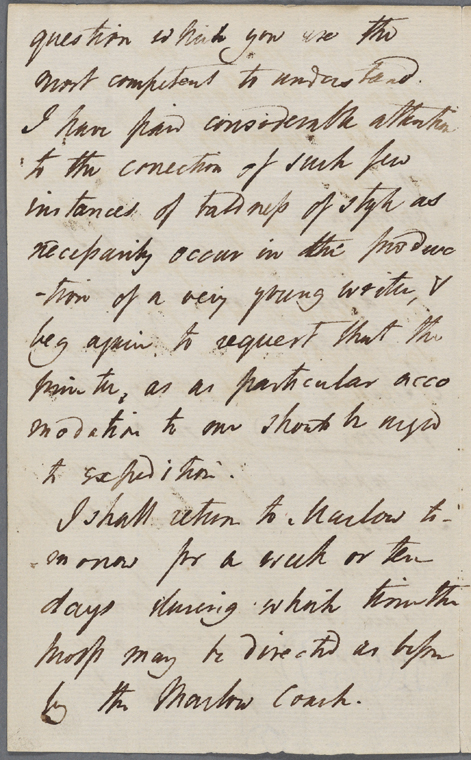 question which you are the
most competent to understand.
I have paid considerable attention
to the correction of such few
instances of baldness of style as
necessarily occur in the produc
-tion of a very young writer, &
beg again to request that the
printer, as a particular acco
modation to me should be urged
to expedition.
I shall return to Marlow to-
morrow for a week or ten
days during which time the
proofs may be directed as before
by the Marlow Coach.